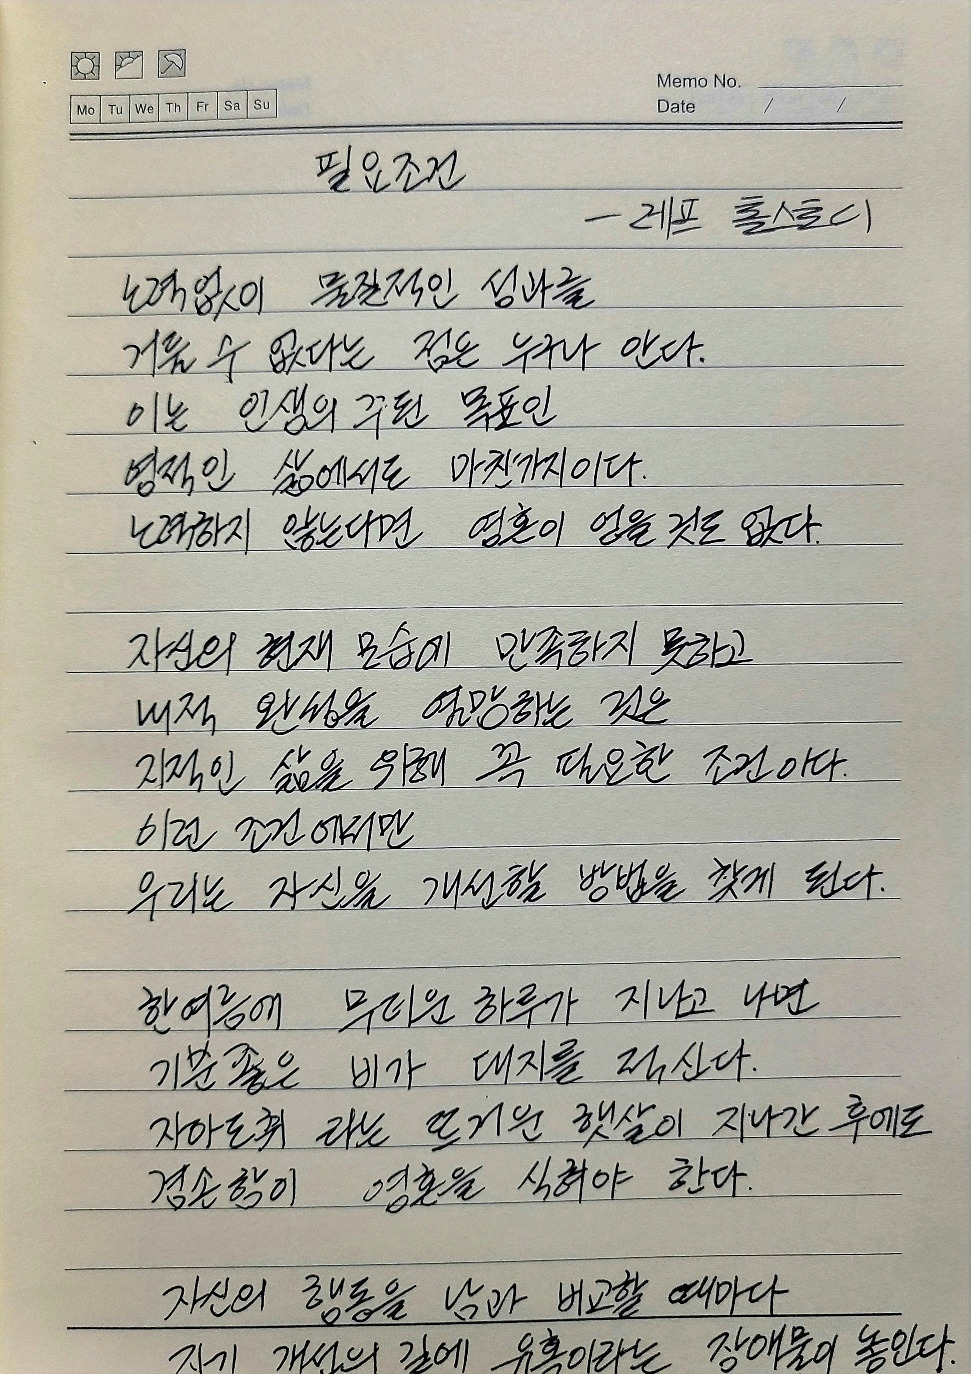 Memo No.
Mo Tu We Th Fr Sa Su
Date / /
필요조건
- 레프 톨스토이
노력없이 물질적인 성과를
거둘 수 없다는 점은 누구나 안다.
이는 인생의 주된 목표인
영적인 삶에서도 마찬가지이다.
노력하지 않는다면 영혼이 얻을 것도 없다.
자신의 현재 모습에 만족하지 못하고
내적 완성을 열망하는 것은
지적인 삶을 위해 꼭 필요한 조건이다.
이런 조건에서만
우리는 자신을 개선할 방법을 찾게 된다.
한여름에 무더운 하루가 지나고 나면
기분좋은 비가 대지를 적신다.
자아도취 라는 뜨거운 햇살이 지나간 후에도
겸손함이 영혼을 식혀야 한다.
자신의 행동을 남과 비교할 때마다
자기 개선의 길에 유혹이라는 장애물이 놓인다.